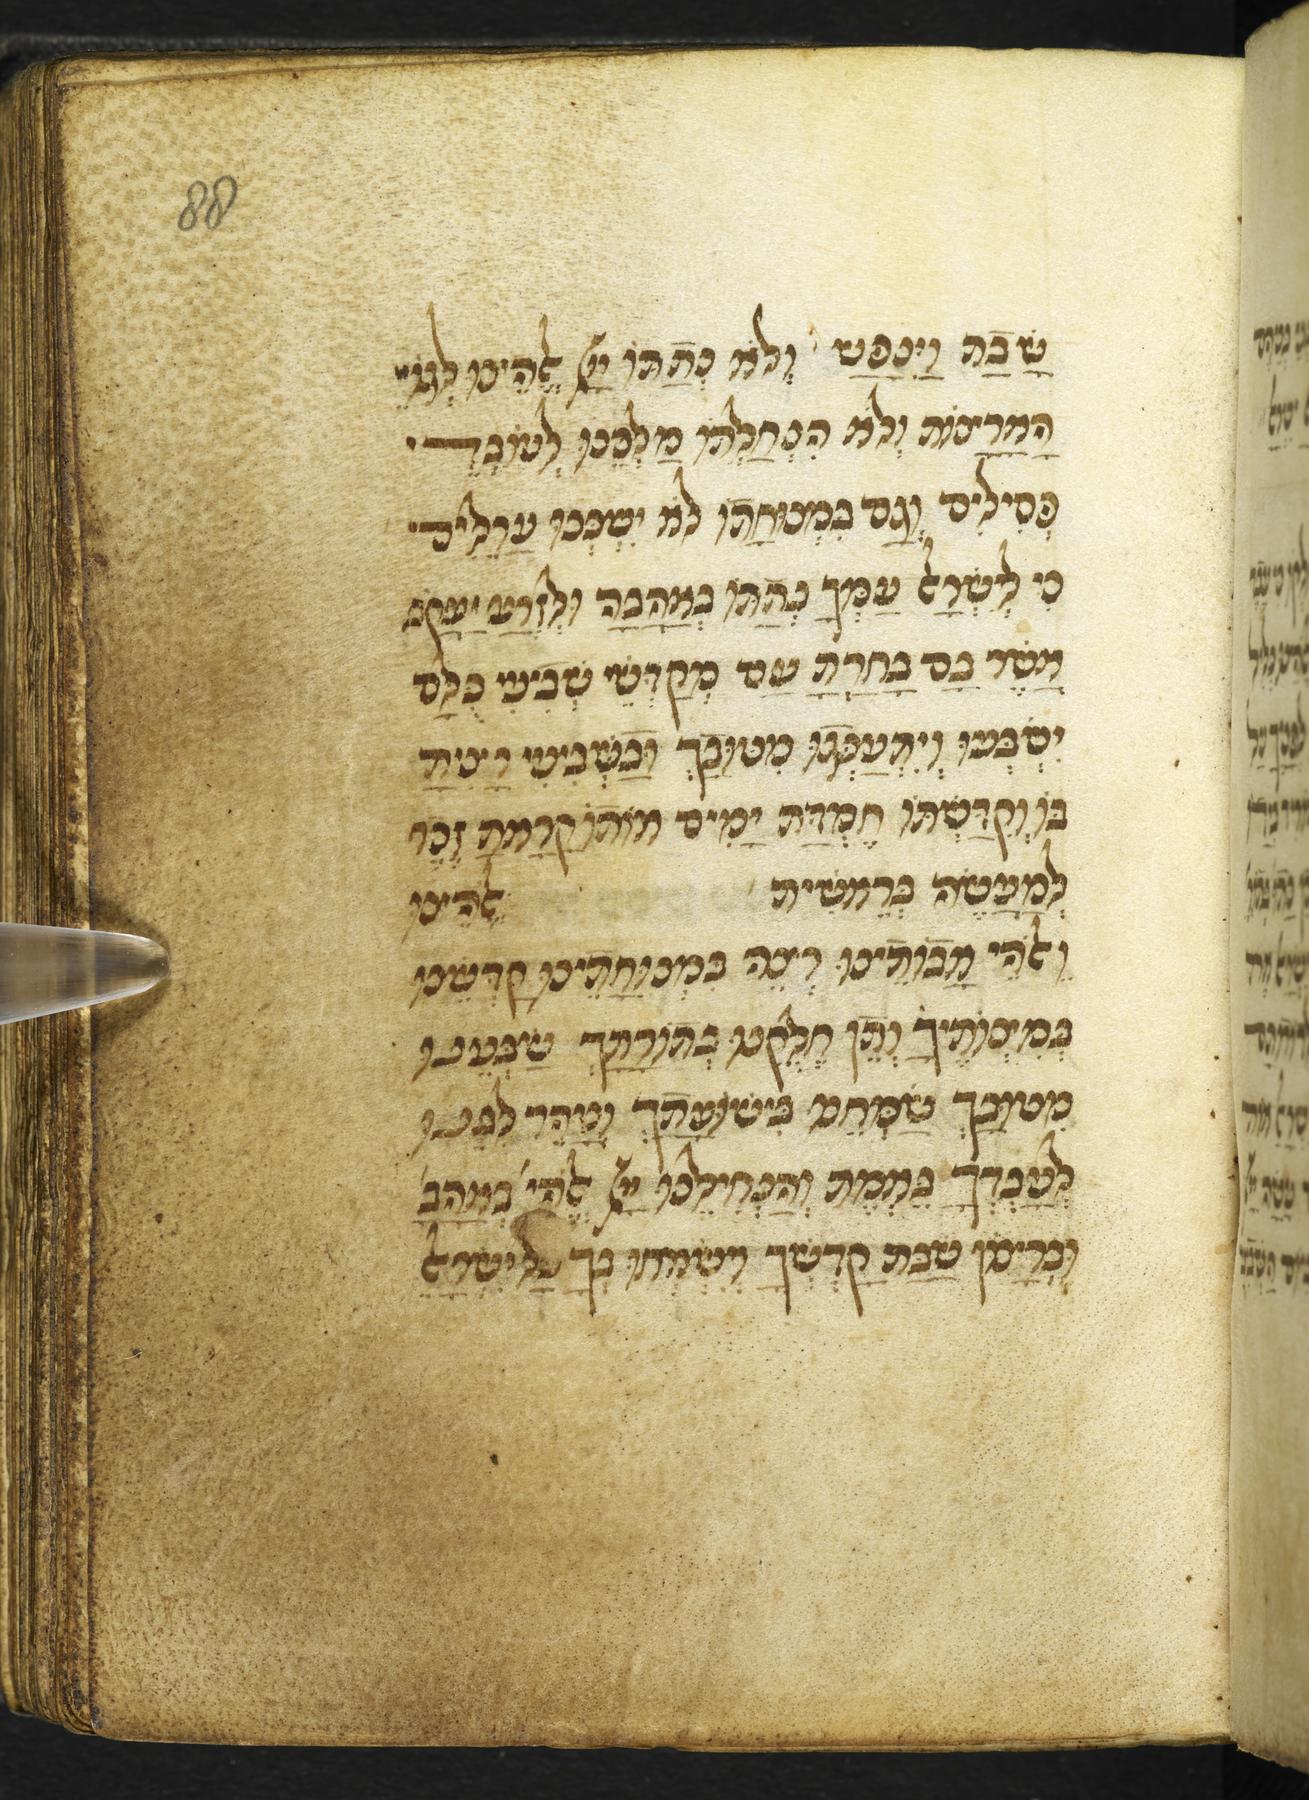 88
שָׁבַת וַיִּנָּפַשׁ וְלֹא נְתַתּוֹ יְיָ אֱלֹהֵינוּ לְגוֹיֵי
הָאֲרָצוֹת וְלֹא הִנְחַלְתּוֹ מַלְכֵּנוּ לְעוֹבְדֵי
פְּסִילִים וְגַם בִּמְנוּחָתוֹ לֹא יִשְׁכְּנוּ עֲרֵלִים
כִּי לְיִשְׂרָאֵל עַמְּךָ נְתַתּוֹ בְּאַהֲבָה וּלְזֶרַע יַעֲקֹב
אֲשֶׁר בָּם בָּחָרְתָּ עַם מְקַדְּשֵׁי שְׁבִיעִי כֻּלָּם
יִשְׂבְּעוּ וְיִתְעַנְּגוּ מִטּוּבָךְ וּבַשְּׁבִיעִי רָצִיתָ
בּוֹ וְקִדַּשְׁתּוֹ חֶמְדַּת יָמִים אוֹתוֹ קָרָאתָ זֵכֶר
לְמַעֲשֵׂה בְרֵאשִׁית אֱלֹהֵינוּ
וֵאלֹהֵי אֲבוֹתֵינוּ רְצֵה בִּמְנוּחָתֵינוּ קַדְּשֵׁנוּ
בְּמִצְוֹתֶיךָ וְתֵן חֶלְקֵנוּ בְּתוֹרָתָךְ שַׂבְּעֵנוּ
מִטּוּבָךְ שַׂמְּחֵנוּ בִּישׁוּעָתָךְ וְטַהֵר לִבֵּנוּ
לְעָבְדְּךָ בֶּאֱמֶת וְהַנְחִילֵנוּ יְיָ אֱלֹהֵי' בְּאַהֲבָ'
וּבְרָצוֹן שַׁבַּת קָדְשְׁךָ וְיִשְׂמְחוּ בְךָ כָּל יִשְׂרָאֵל